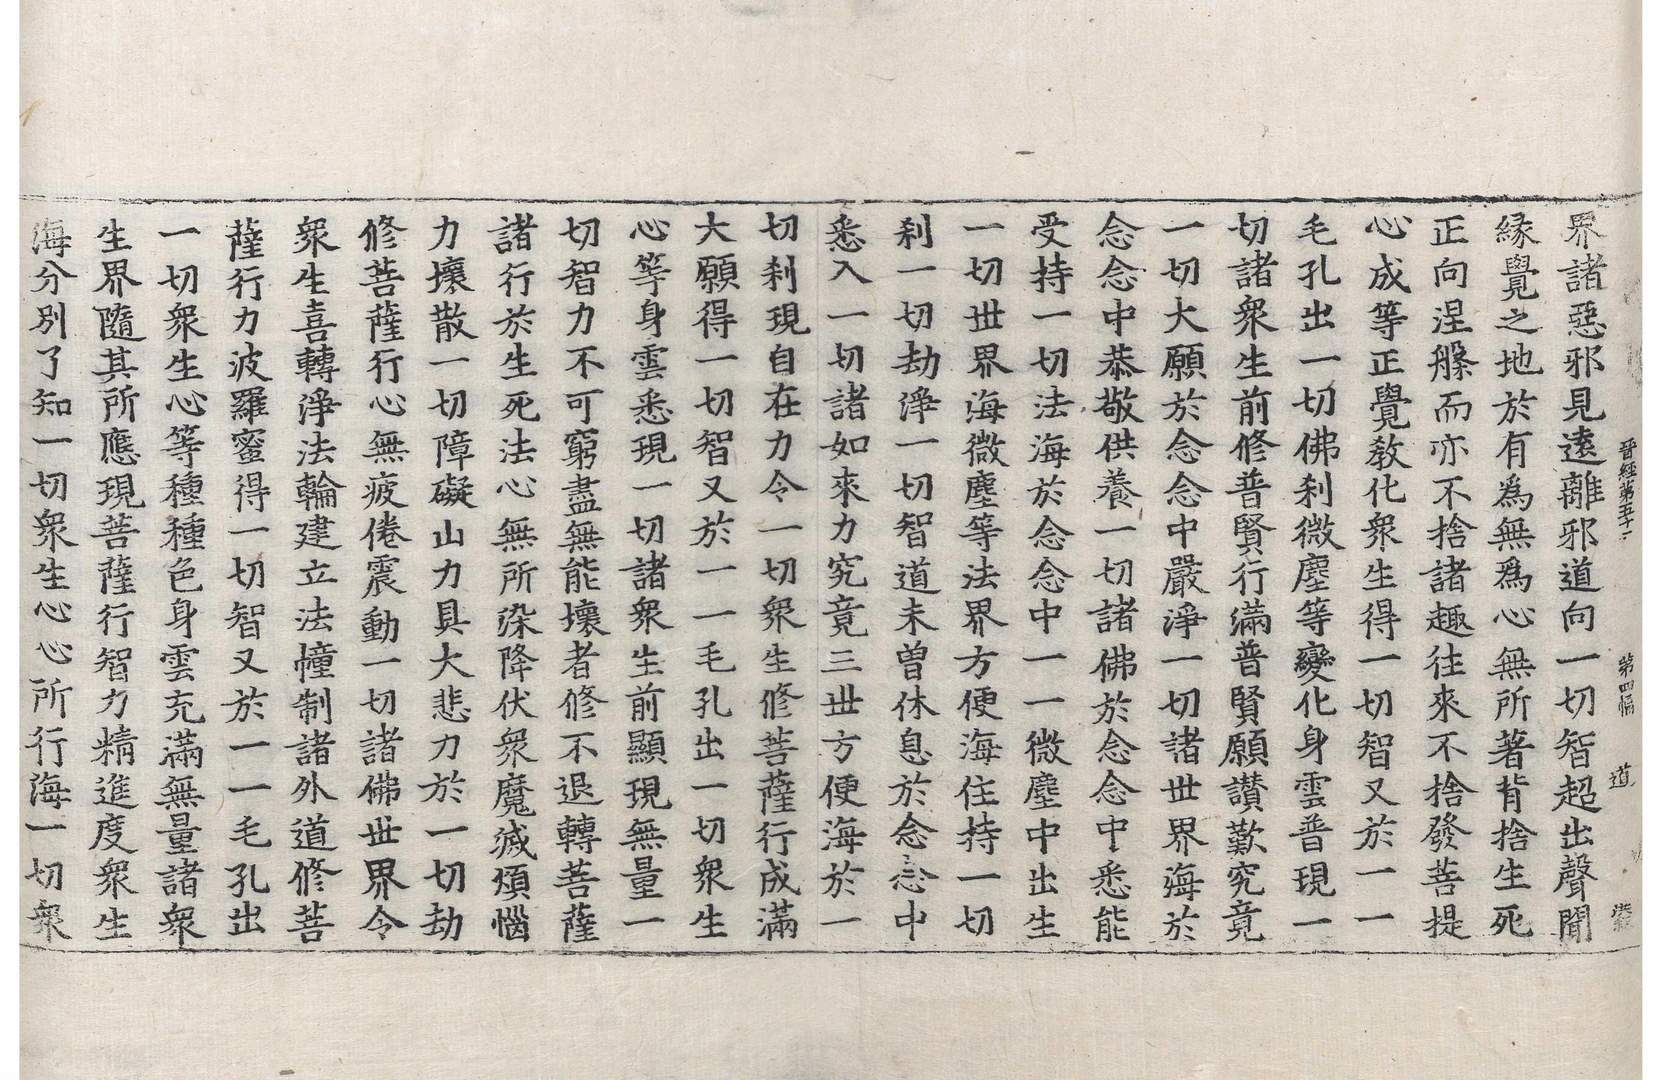 晉經第五十二 第四幅 道
界諸惡邪見遠離邪道向一切智超出聲聞
緣覺之地於有為無為心無所著背捨生死
正向涅槃而亦不捨諸趣往來不捨發菩提
心成等正覺教化衆生得一切智又於一一
毛孔出一切佛刹微塵等變化身雲普現一
切諸衆生前修普賢行滿普賢願讃歎究竟
一切大願於念念中嚴淨一切諸世界海於
念念中恭敬供養一切諸佛於念念中悉能
受持一切法海於念念中一一微塵中出生
一切世界海微塵等法界方便海住持一切
刹一切劫淨一切智道未曾休息於念念中
悉入一切諸如來力究竟三世方便海於一
切刹現自在力令一切衆生修菩薩行成滿
大願得一切智又於一一毛孔出一切衆生
心等身雲悉現一切諸衆生前顯現無量一
切智力不可窮盡無能壞者修不退轉菩薩
諸行於生死法心無所染降伏衆魔滅煩惱
力壞散一切障礙山力具大悲力於一切劫
修菩薩行心無疲倦震動一切諸佛世界令
衆生喜轉淨法輪建立法幢制諸外道修菩
薩行力波羅蜜得一切智又於一一毛孔出
一切衆生心等種種色身雲充滿無量諸衆
生界隨其所應現菩薩行智力精進度衆生
海分別了知一切衆生心心所行海一切衆